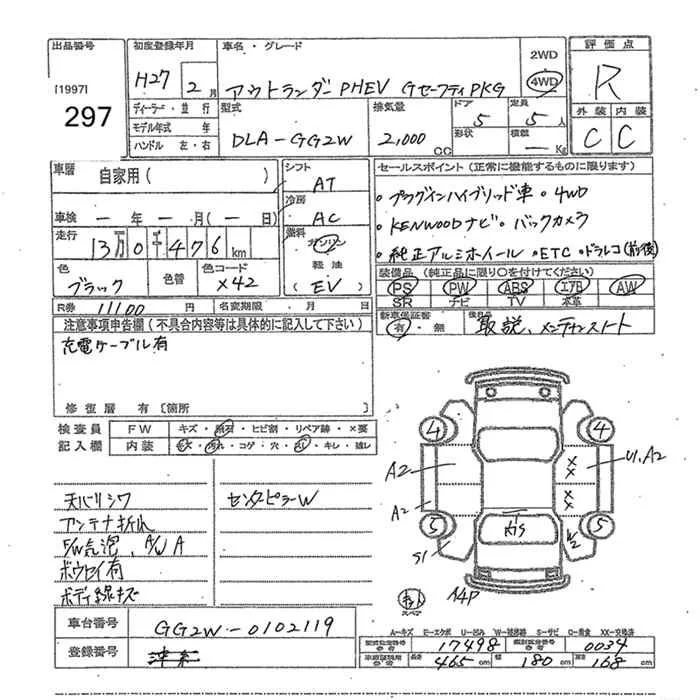 出品番号 初度登録年月 車名・グレード 2WD 評価点
[1997] H27 2月 アウトランダーPHEV GセーフティPKG 4WD R
297 ディーラー・並行 型式 排気量 ドア 定員 外装 内装
モデル年式 年 DLA-GG2W 2,000cc 5 5人 C C
ハンドル 左・右 形状 積載 — Kg
車暦 自家用( ) シフト AT セールスポイント(正常に機能するものに限ります)
冷房 AC ・プラグインハイブリッド車・4WD
車検 一年一月(一日) ・KENWOODナビ・バックカメラ
走行 13万0千476km 燃料 ガソリン ・純正アルミホイール・ETC・ドラレコ(前後)
色 ブラック 色替 色コード X42 軽油 (EV) 装備品(純正品に限り○を付けてください)
PS PW ABS エアB AW
SR ナビ TV 本革
R券 11100円 名変期限 月 日 新車保証書 有・無 後日品 取説、メンテナンスノート
注意事項申告欄(不具合内容等は具体的に記入して下さい)
充電ケーブル有
修復歴 有〔箇所
検査員 FW キズ・飛石・ヒビ割・リペア跡・×要
記入欄 内装 コゲ・穴・キレ・破レ
天バリシワ センタピラーW
アンテナ折れ
F/W気泡、A/W A
ボウセイ有
ボディ線キズ
4 4
A2 U1,A2
× × × ×
A2
5 5
S1 W2
A4P
スペア
車台番号 GG2W-0102119
登録番号
A—キズ E—エクボ U—凹み W—補修跡 S—サビ C—腐食 XX—交換済
17498 0034
長さ 465cm 幅 180cm 高さ 168cm